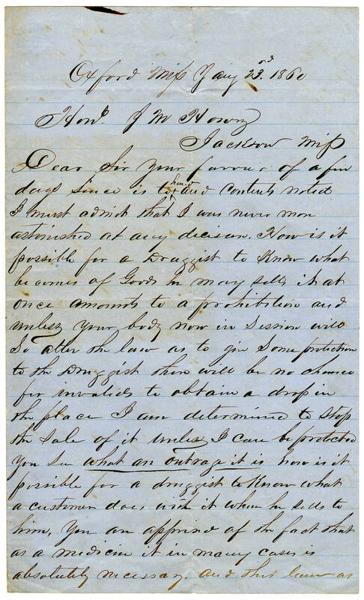 Oxford Miss Jany 22nd 1860
Honl. J M Howry
Jackson Miss
Dear Sir your favour of a few
days since is to hand and contents noted
I must admit that I was never more
astonished at any decision. How is it
possible for a Druggist to Know what
becomes of Goods he may sell, it at
once amounts to a prohibition and
unless your body now in Session will
So alter the law as to give Some protection
to the Druggist there will be no chance
for invalids to obtain a drop in
the place I am determined to Stop
the Sale of it unless I can be protected
You see what an outrage it is how is it
possible for a druggist to Know what
a customer does with it when he sells to
him, You are apprised of the fact that
as a medicine it in many cases is
absolutely necessary. and this law as